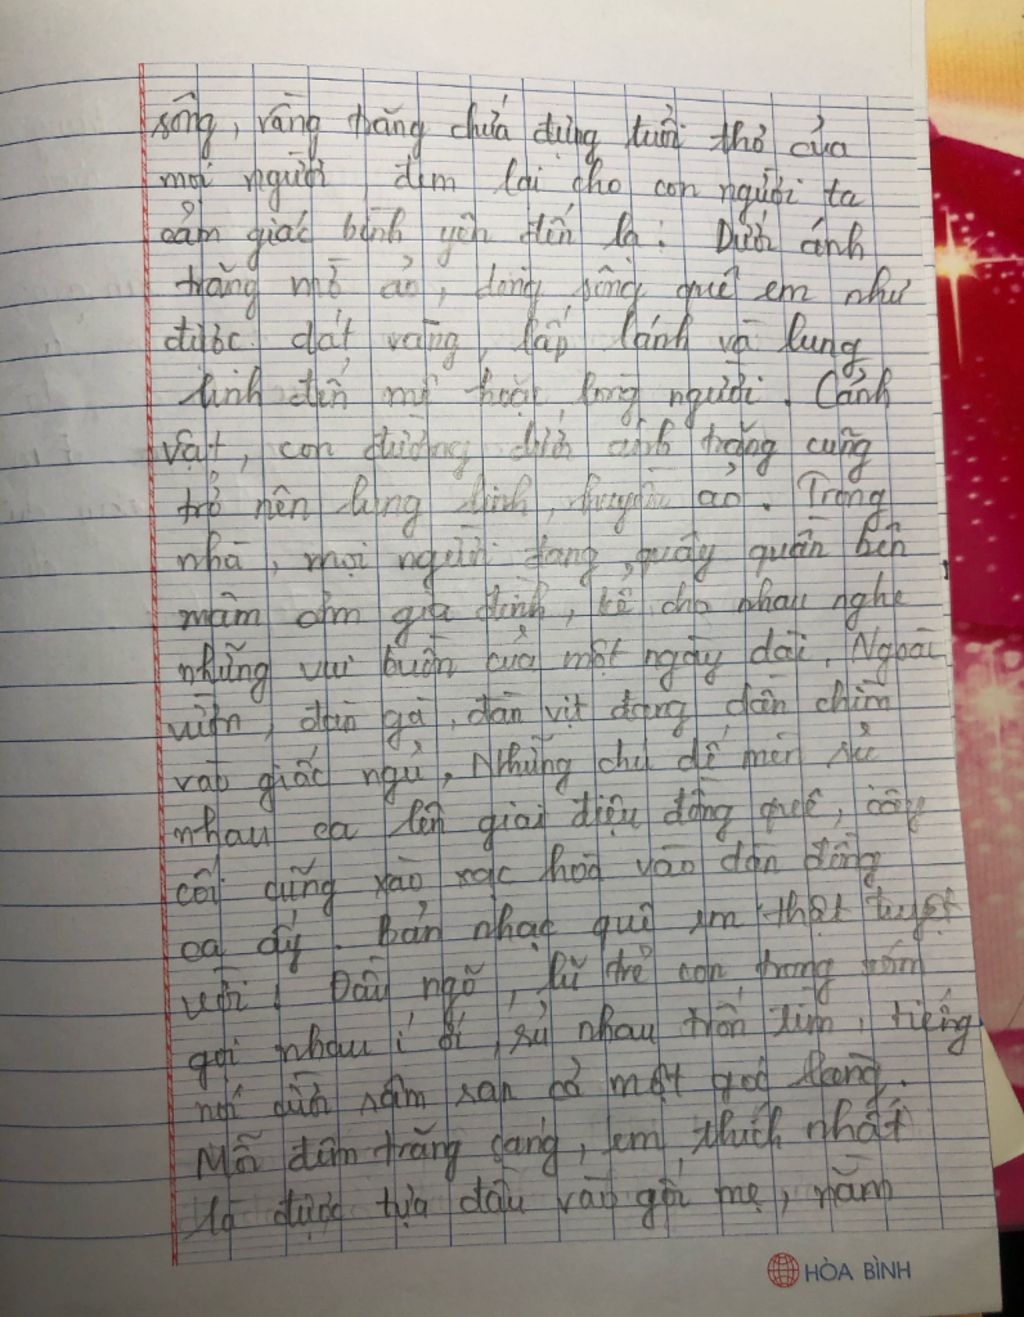 sông, vầng trăng chứa đựng tuổi thơ của
mọi người, đem lại cho con người ta
cảm giác bình yên đến lạ. Dưới ánh
trăng mờ ảo, dòng sông quê em như
được dát vàng, lấp lánh và lung
linh đến mê hoặc lòng người. Cảnh
vật, con đường dưới ánh trăng cũng
trở nên lung linh, huyền ảo. Trong
nhà, mọi người đang quây quần bên
mâm cơm gia đình, kể cho nhau nghe
những vui buồn của một ngày dài. Ngoài
vườn, đàn gà, đàn vịt đang dần chìm
vào giấc ngủ. Những chú dế mèn rủ
nhau ca lên giai điệu đồng quê, cây
cối cũng xào xạc hoà vào dàn đồng
ca ấy. Bản nhạc quê em thật tuyệt
vời! Đầu ngõ, lũ trẻ con trong xóm
gọi nhau í ới, rủ nhau trốn tìm, tiếng
nói cười râm ran cả một góc
Mỗi đêm trăng sáng, em thích nhất
là được tựa đầu vào gối mẹ, nằm
HÒA BÌNH